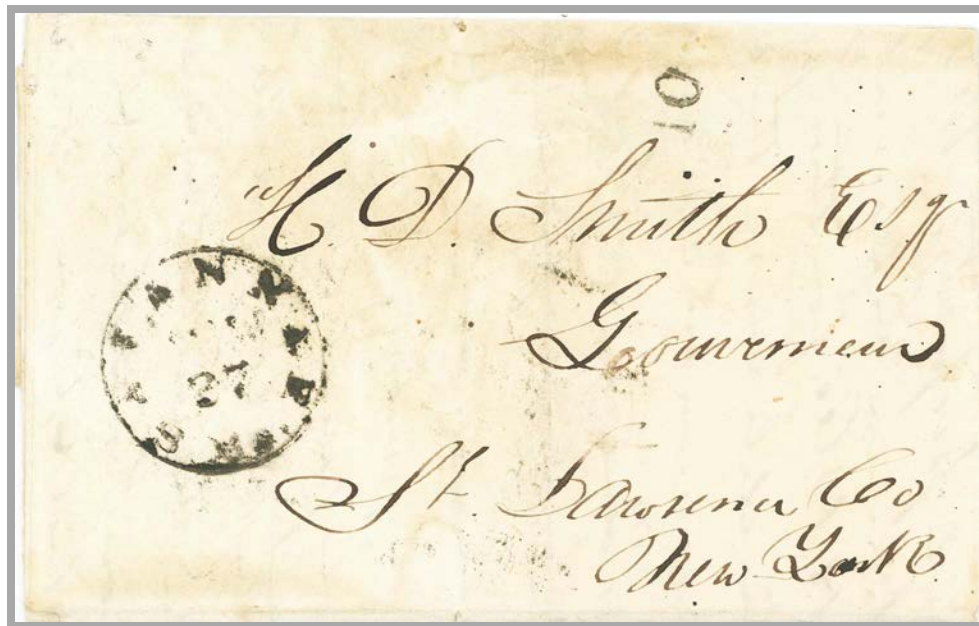 10
H. D. Smith Esqr
Gouverneur
St. Lawrence Co
New York
SAVANNAH Mo.
27